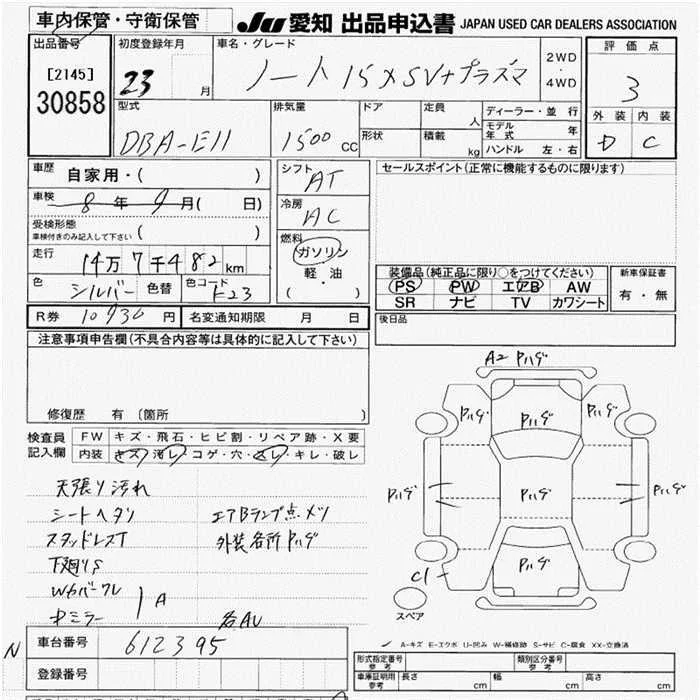 車内保管・守衛保管
JU 愛知 出品申込書 JAPAN USED CAR DEALERS ASSOCIATION
出品番号 初度登録年月 車名・グレード 2WD・4WD 評価点
[2145] 30858 23 月 ノート 15X SV+プラズマ 3
型式 排気量 ドア 定員 人 ディーラー・並行 外装 内装
DBA-E11 1500 CC 形状 積載 kg モデル年式 年 D C
ハンドル 左・右
車歴 自家用・( ) シフト AT セールスポイント(正常に機能するものに限ります)
車検 8年9月( 日) 冷房 AC
受検形態 車検付きのみ記入して下さい ( )
走行 14万7千482km 燃料 ガソリン・軽・油 ( )
色 シルバー 色替 色コード K23
装備品(純正品に限り○をつけてください) 新車保証書
PS PW エアB AW 有・無
SR ナビ TV カワシート
R券 10730円 名変通知期限 月 日 後日品
注意事項申告欄(不具合内容等は具体的に記入して下さい)
修復歴 有 〔箇所
検査員記入欄 FW キズ・飛石・ヒビ割・リペア跡・X要
内装 キズ・汚レ・コゲ・穴・スレ・キレ・破レ
天張り汚れ
シートヘタリ エアBランプ点メツ
スタッドレスT 外装各所Pハゲ
下廻りS
Wカバーワレ
中ミラー A
各AU
A2 Pハゲ
Pハゲ Pハゲ Pハゲ
Pハゲ Pハゲ Pハゲ
C1 Pハゲ
スペア
A-キズ E-エクボ U-凹み W-補修跡 S-サビ C-腐食 XX-交換済
N 車台番号 612395
登録番号
型式指定番号 参考 類別区分番号 参考
車庫証明用 参考 長さ cm 幅 cm 高さ cm